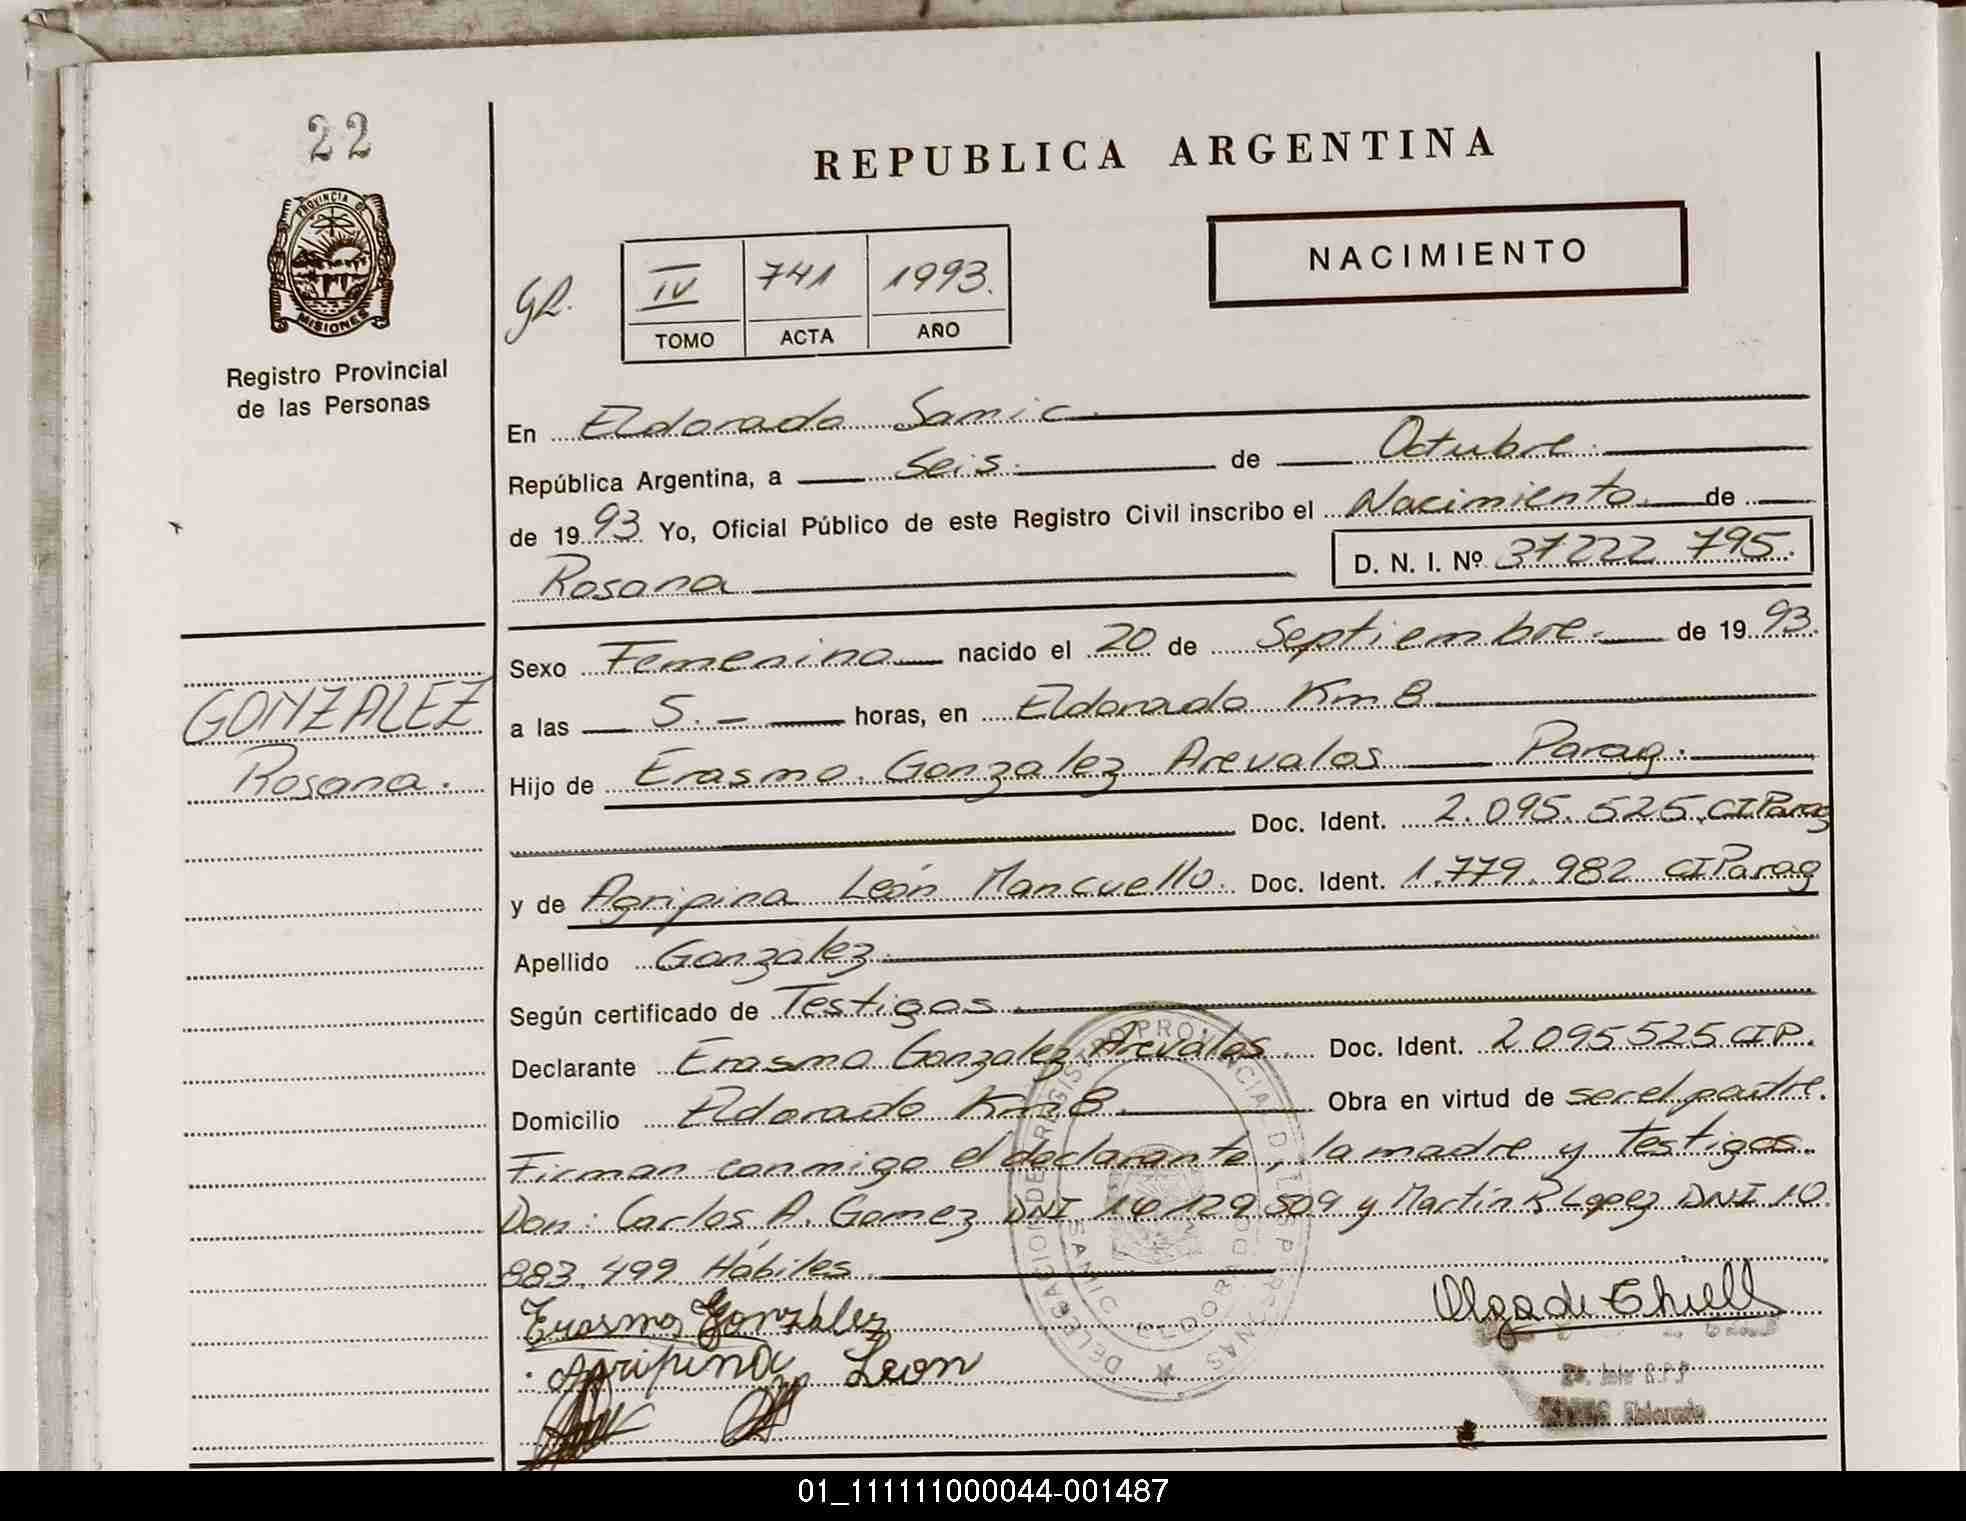 22
PROVINCIA DE
MISIONES
Registro Provincial
de las Personas
REPUBLICA ARGENTINA
NACIMIENTO
IV 741 1993.
TOMO ACTA AÑO
En Eldorado Samic.
República Argentina, a Seis. de Octubre.
de 1993 Yo, Oficial Público de este Registro Civil inscribo el Nacimiento. de
Rosana D. N. I. Nº 37222 795.
Sexo Femenino nacido el 20 de Septiembre. de 1993.
a las 5. – horas, en Eldorado Km 8
GONZALEZ
Rosana.
Hijo de Erasmo Gonzalez Arevalos Parag.
Doc. Ident. 2.095.525 CI Parag
y de Agripina León Mancuello. Doc. Ident. 1.779.982 CI Parag
Apellido Gonzalez.
Según certificado de Testigos.
Declarante Erasmo Gonzalez Arevalos. Doc. Ident. 2095525 CI P.
Domicilio Eldorado Km 8. Obra en virtud de ser el padre.
Firman conmigo el declarante, la madre y testigos.
Don: Carlos A. Gomez DNI 509 y Martín R Lopez DNI 10
883.499 Hábiles.
Erasmo González
Agripina Leon
Olga de
Eldorado
01_111111000044-001487